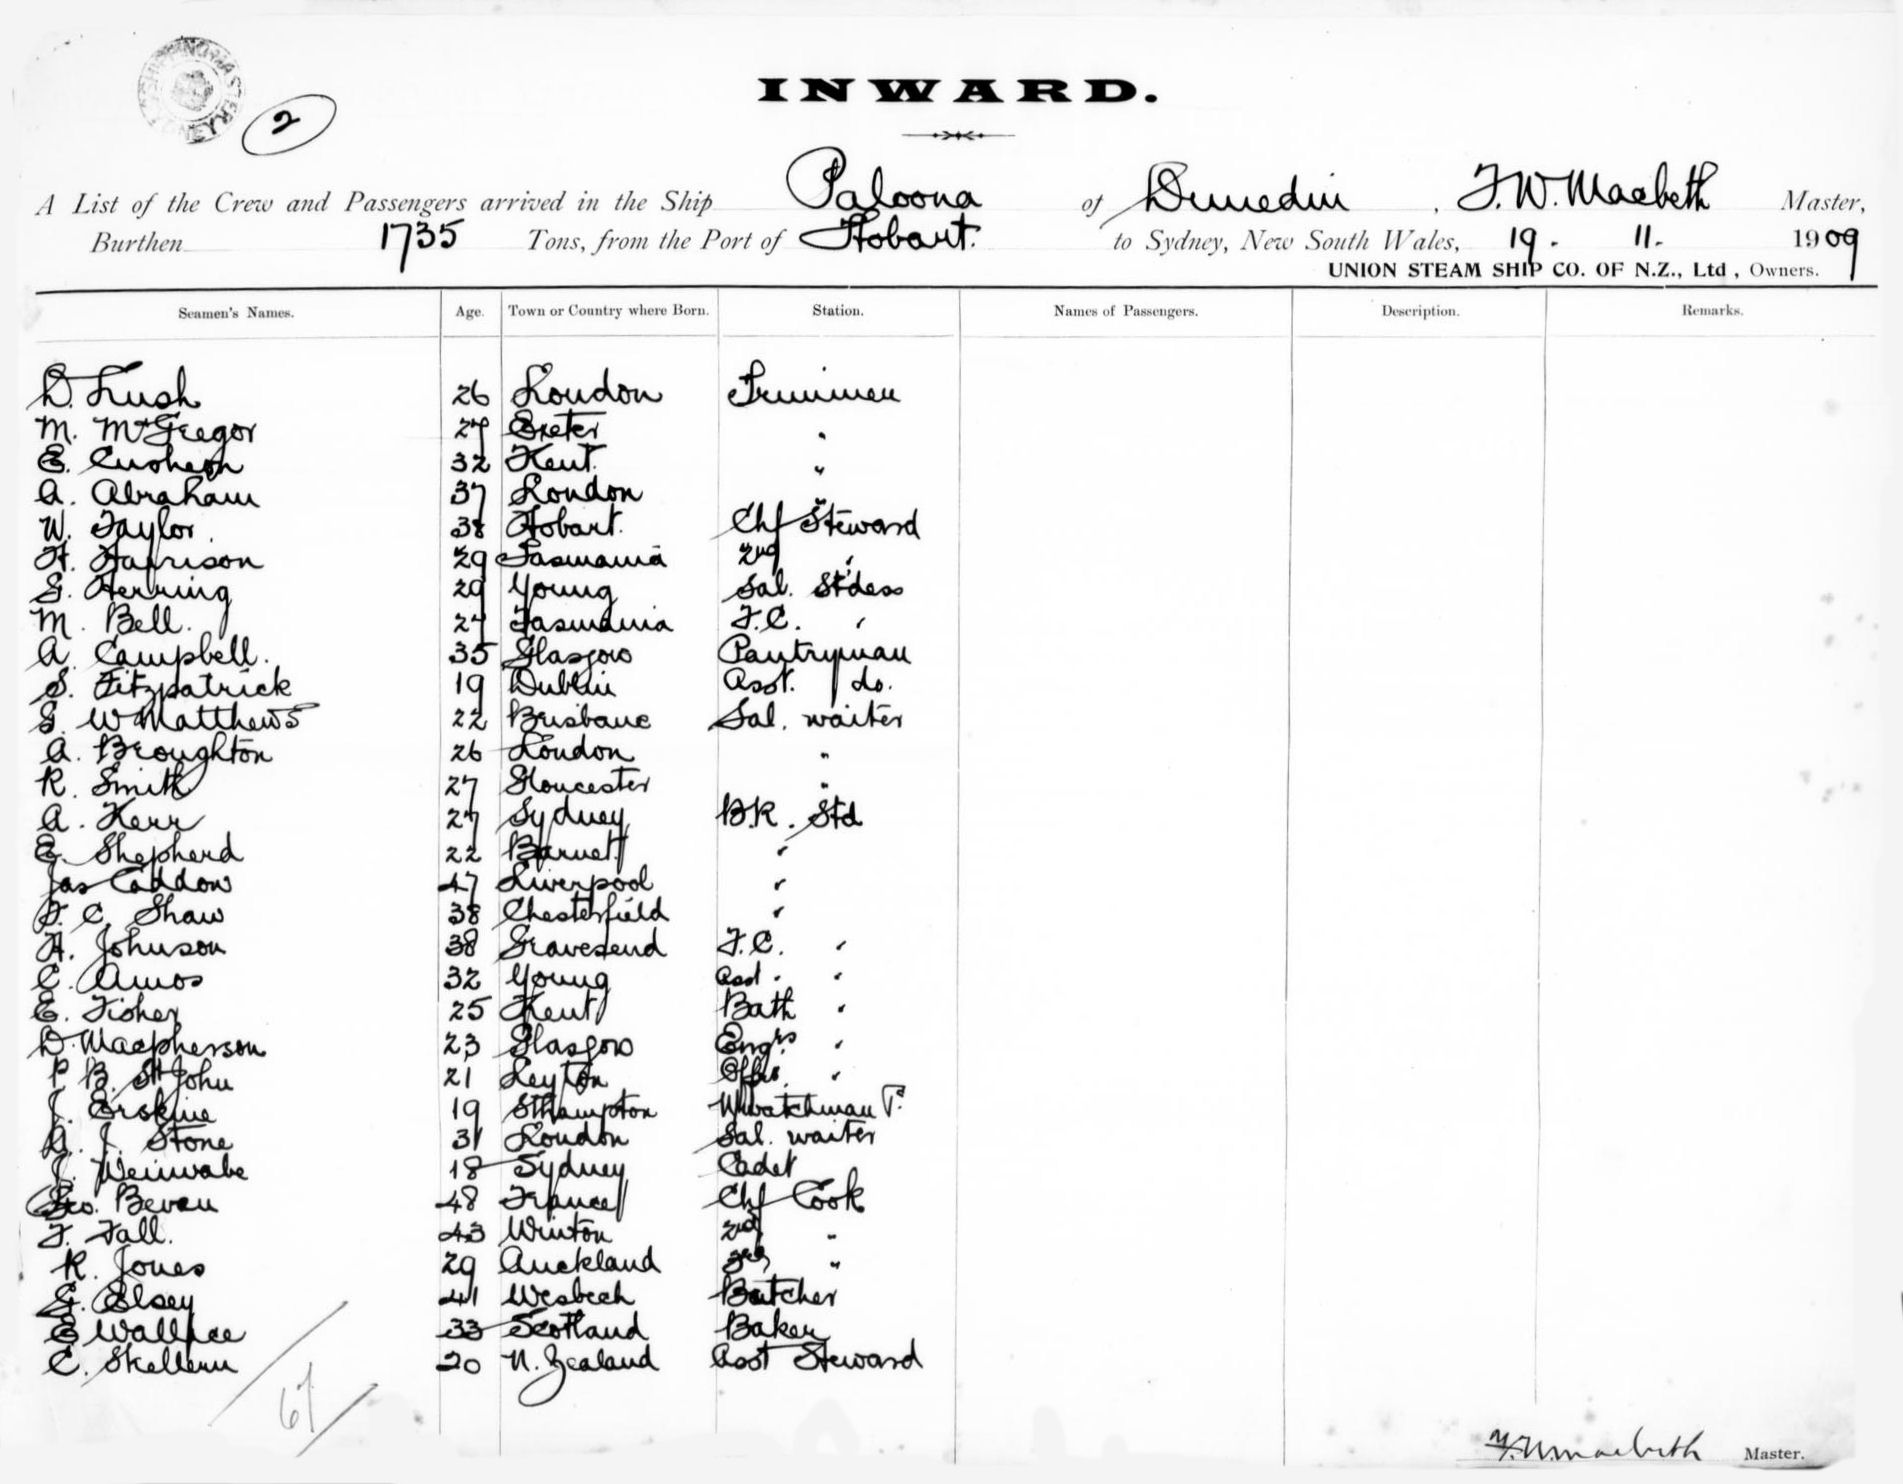 2
INWARD.
A List of the Crew and Passengers arrived in the Ship Paloona of Dunedin, F. W. Macbeth Master,
Burthen 1735 Tons, from the Port of Hobart. to Sydney, New South Wales, 19. 11. 1909
UNION STEAM SHIP CO. OF N.Z., Ltd, Owners.
Seamen's Names. Age. Town or Country where Born. Station. Names of Passengers. Description. Remarks.
D. Lush 26 London Trimmer
M. McGregor 27 Exeter "
E. 32 Kent. "
A. Abraham 37 London "
W. Taylor 38 Hobart. Chf Steward
H. Harrison 29 Tasmania 2nd "
G. Herring 29 Young Sal. St'dess
M. Bell. 27 Tasmania F.C. "
A. Campbell. 35 Glasgow Pantryman
S. Fitzpatrick 19 Dublin Asst. do.
G. W Matthews 22 Brisbane Sal. waiter
A. Broughton 26 London "
R. Smith 27 Gloucester "
A. Kerr 27 Sydney B.R. Std
E. Shepherd 22 Barnet "
Jas Caddow 47 Liverpool "
F. C. Shaw 38 Chesterfield "
H. Johnson 38 Gravesend F.C. "
C. Amos 32 Young Asst. "
E. Fisher 25 Kent Bath "
D. Macpherson 23 Glasgow Engrs "
P B. St John 21 Leyton Offrs. "
J. Erskine 19 Sthampton
A. J. Stone 31 London Sal. waiter
J. 18 Sydney Cadet
Geo. Bevan 48 France Chf Cook
F. Fall. 43 Winton 2nd "
R. Jones 29 Auckland 3rd "
G. Elsey 41 Wesbech Butcher
E Wallace 33 Scotland Baker
C. Skellern 20 N. Zealand Asst Steward
67
F. W. Macbeth Master.